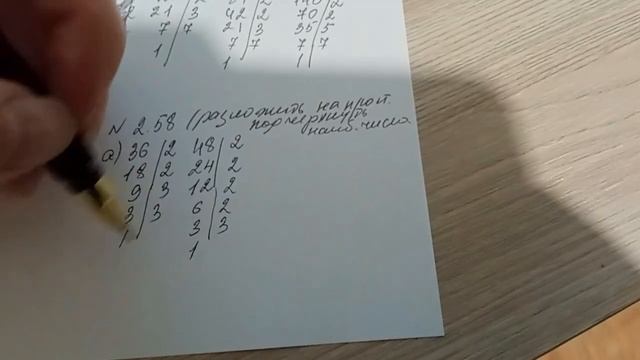 21 | 3 42 | 2 70 | 2
7 | 7 21 | 3 35 | 5
1 7 | 7 7 | 7
1 1
N 2.58 (разложить на прост.
подчеркнуть
наиб. числа
а) 36 | 2 48 | 2
18 | 2 24 | 2
9 | 3 12 | 2
3 | 3 6 | 2
1 3 | 3
1